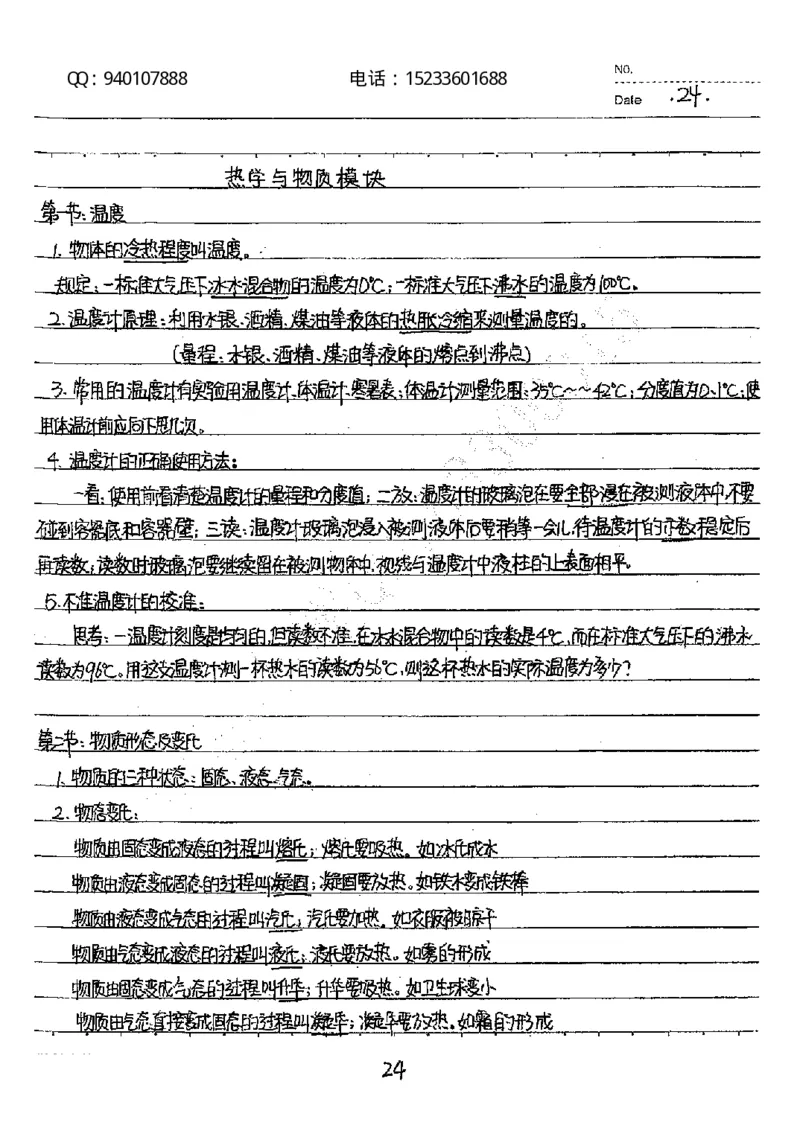 QQ：940107888 电话：15233601688 NO.
Date .24.
热学与物质模块
第一节：温度
1. 物体的冷热程度叫温度。
规定：一标准大气压下冰水混合物的温度为0℃；一标准大气压下沸水的温度为100℃。
2. 温度计原理：利用水银、酒精、煤油等液体的热胀冷缩来测量温度的。
（量程：水银、酒精、煤油等液体的熔点到沸点）
3. 常用的温度计有实验用温度计、体温计、寒暑表；体温计测量范围：35℃~~42℃；分度值为0.1℃；使
用体温计前应向下甩几次。
4. 温度计的正确使用方法：
一看：使用前看清楚温度计的量程和分度值；二放：温度计的玻璃泡在要全部浸在被测液体中，不要
碰到容器底和容器壁；三读：温度计玻璃泡浸入被测液体后要稍等一会儿，待温度计的示数稳定后
再读数；读数时玻璃泡要继续留在被测物体中，视线与温度计中液柱的上表面相平。
5. 不准温度计的校准：
思考：一温度计刻度是均匀的，但读数不准，在冰水混合物中的读数是4℃，而在标准大气压下的沸水
读数为96℃。用这支温度计测一杯热水的读数为56℃，则这杯热水的实际温度为多少？
第二节：物质形态及变化
1. 物质的三种状态：固态、液态、气态。
2. 物态变化：
物质由固态变成液态的过程叫熔化；熔化要吸热。如冰化成水
物质由液态变成固态的过程叫凝固；凝固要放热。如铁水变成铁棒
物质由液态变成气态的过程叫汽化；汽化要加热。如衣服被晾干
物质由气态变成液态的过程叫液化；液化要放热。如雾的形成
物质由固态变成气态的过程叫升华；升华要吸热。如卫生球变小
物质由气态直接变成固态的过程叫凝华；凝华要放热。如霜的形成
24